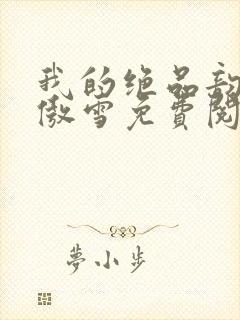 我的绝品
傲雪免費閱
夢小步